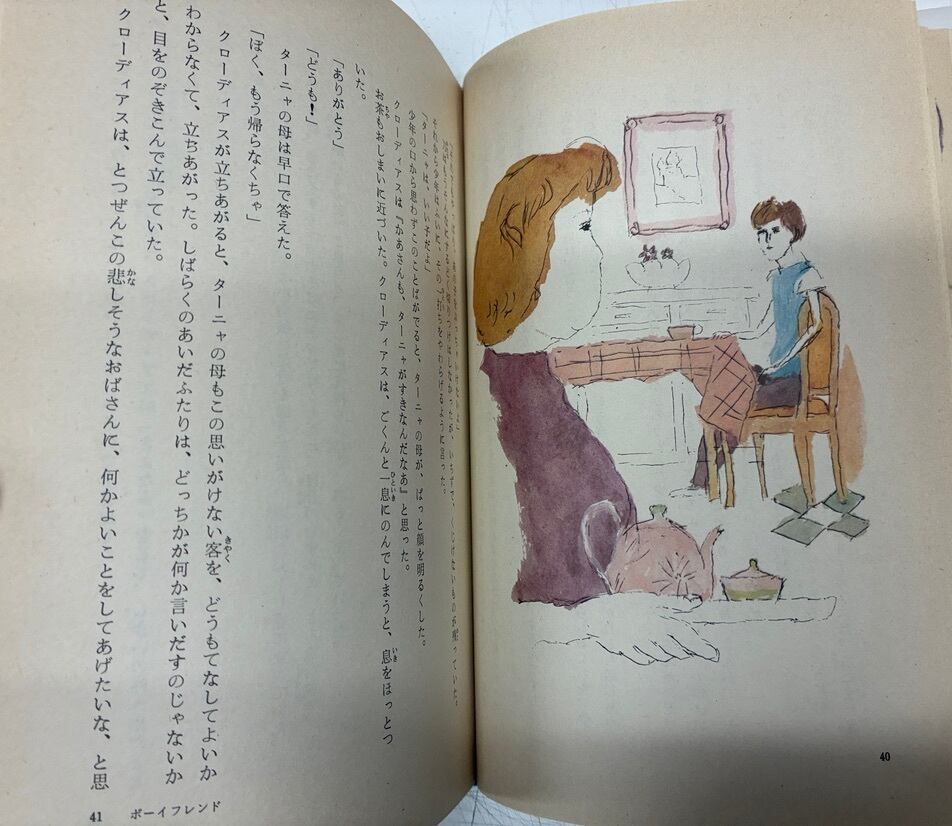 それから少年はふいと、その
「ターニャは、いい子だよ」
少年の口から思わずこのことばがでると、ターニャの母が、ぱっと顔を明るくした。
クローディアスは『かあさんも、ターニャがすきなんだなあ』と思った。
お茶もおしまいに近づいた。クローディアスは、ごくんと一息にのんでしまうと、息をほっとつ
いた。
「ありがとう」
「どうも！」
ターニャの母は早口で答えた。
「ぼく、もう帰らなくちゃ」
クローディアスが立ちあがると、ターニャの母もこの思いがけない客を、どうもてなしてよいか
わからなくて、立ちあがった。しばらくのあいだふたりは、どっちかが何か言いだすのじゃないか
と、目をのぞきこんで立っていた。
クローディアスは、とつぜんこの悲しそうなおばさんに、何かよいことをしてあげたいな、と思
40
41 ボーイフレンド